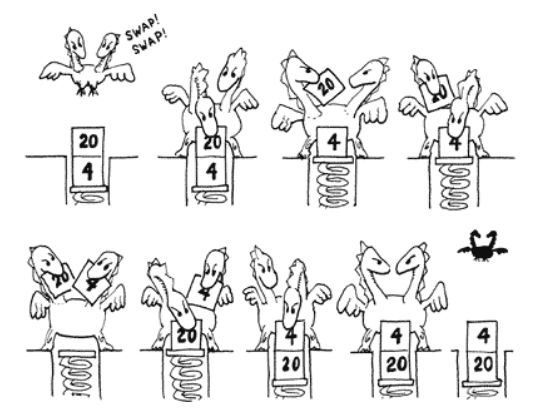 SWAP!
SWAP!
20
4
20
4
20
4
20
4
20
4
4
20
4
20
4
20
4
20